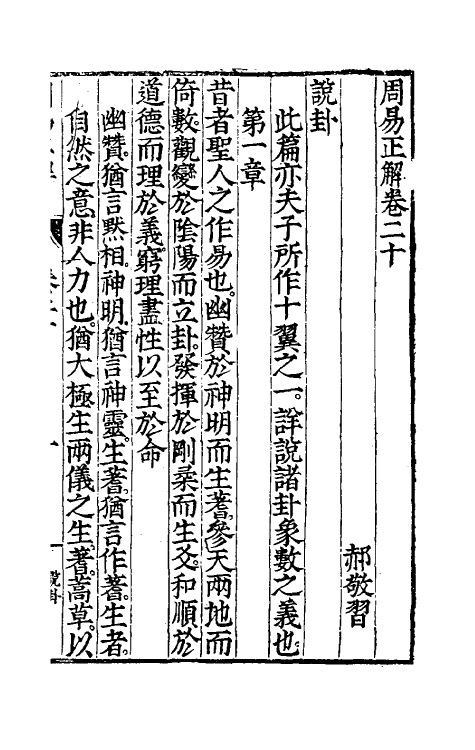 周易正解卷二十
郝敬習
說卦
此篇亦夫子所作十翼之一。詳說諸卦象數之義也
第一章
昔者聖人之作易也。幽贊於神明而生蓍。參天兩地而
倚數。觀變於陰陽而立卦。發揮於剛柔而生爻。和順於
道德而理於義。窮理盡性以至於命
幽贊。猶言默相。神明。猶言神靈。生蓍。猶言作蓍。生者。
自然之意。非人力也。猶大極生兩儀之生。蓍。蒿草。以
說卦